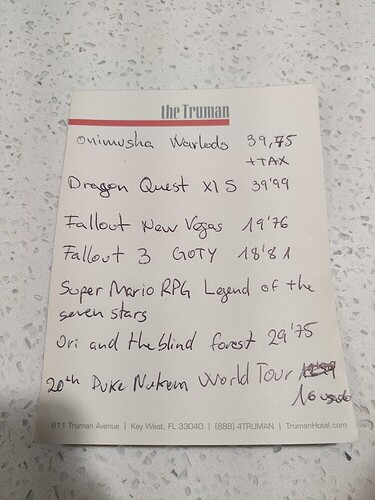 the Truman
Onimusha Warlods 39,75
+TAX
Dragon Quest XI S 39'99
Fallout New Vegas 19'76
Fallout 3 GOTY 18'81
Super Mario RPG Legend of the
seven stars
Ori and the blind forest 29'75
20th Duke Nukem World Tour
No usado
611 Truman Avenue | Key West, FL 33040 | (888) 4TRUMAN | TrumanHotel.com